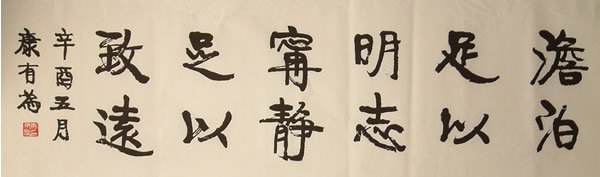 澹泊
足以
明志
寧静
足以
致遠
辛酉五月
康有為